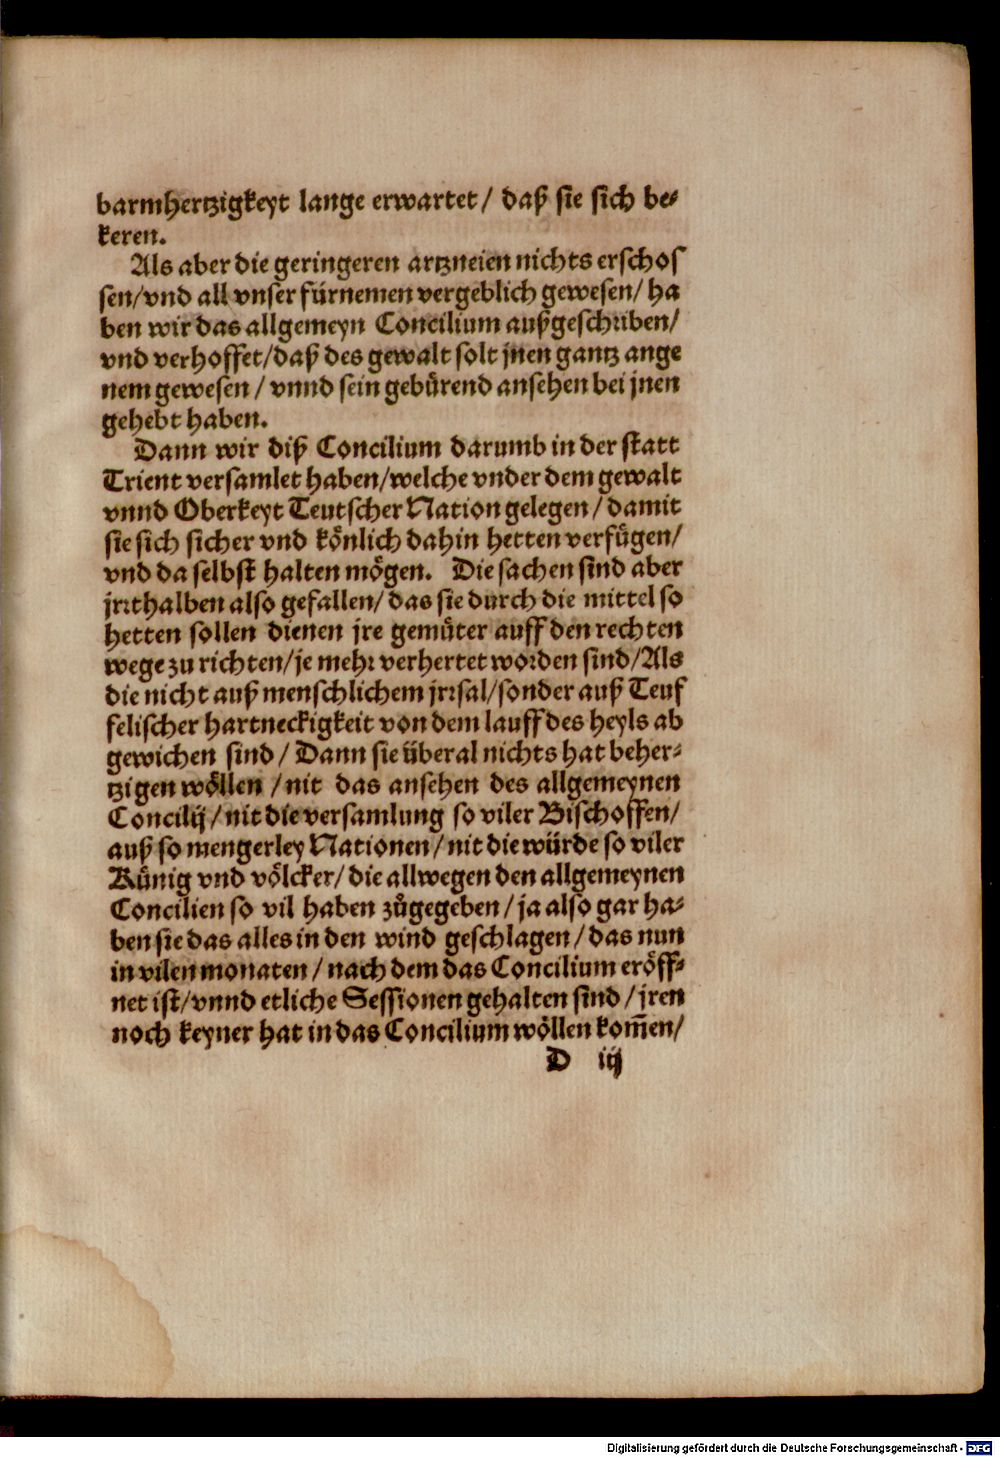 barmhertzigkeyt lange erwartet / daß sie sich be-
keren.
Als aber die geringeren artzneien nichts erschos
sen/vnd all vnser fürnemen vergeblich gewesen/ ha
ben wir das allgemeyn Concilium außgeschriben/
vnd verhoffet/daß des gewalt solt jnen gantz ange
nem gewesen / vnnd sein gebürend ansehen bei jnen
gehebt haben.
Dann wir diß Concilium darumb in der statt
Trient versamlet haben/welche vnder dem gewalt
vnnd Oberkeyt Teutscher Nation gelegen / damit
sie sich sicher vnd könlich dahin hetten verfügen/
vnd da selbst halten mögen. Die sachen sind aber
jrrthalben also gefallen/ das sie durch die mittel so
hetten sollen dienen jre gemüter auff den rechten
wege zu richten/je mehr verhertet worden sind/Als
die nicht auß menschlichem jrrsal/sonder auß Teuf
felischer hartneckigkeit von dem lauff des heyls ab
gewichen sind / Dann sie überal nichts hat beher-
tzigen wöllen / nit das ansehen des allgemeynen
Concilij / nit die versamlung so viler Bischoffen/
auß so mengerley Nationen / nit die würde so viler
Künig vnd völcker/ die allwegen den allgemeynen
Concilien so vil haben zůgegeben / ja also gar ha-
ben sie das alles in den wind geschlagen / das nun
in vilen monaten / nach dem das Concilium eröff-
net ist/vnnd etliche Sessionen gehalten sind / jren
noch keyner hat in das Concilium wöllen kom̄en/
D iij
Digitalisierung gefördert durch die Deutsche Forschungsgemeinschaft - DFG